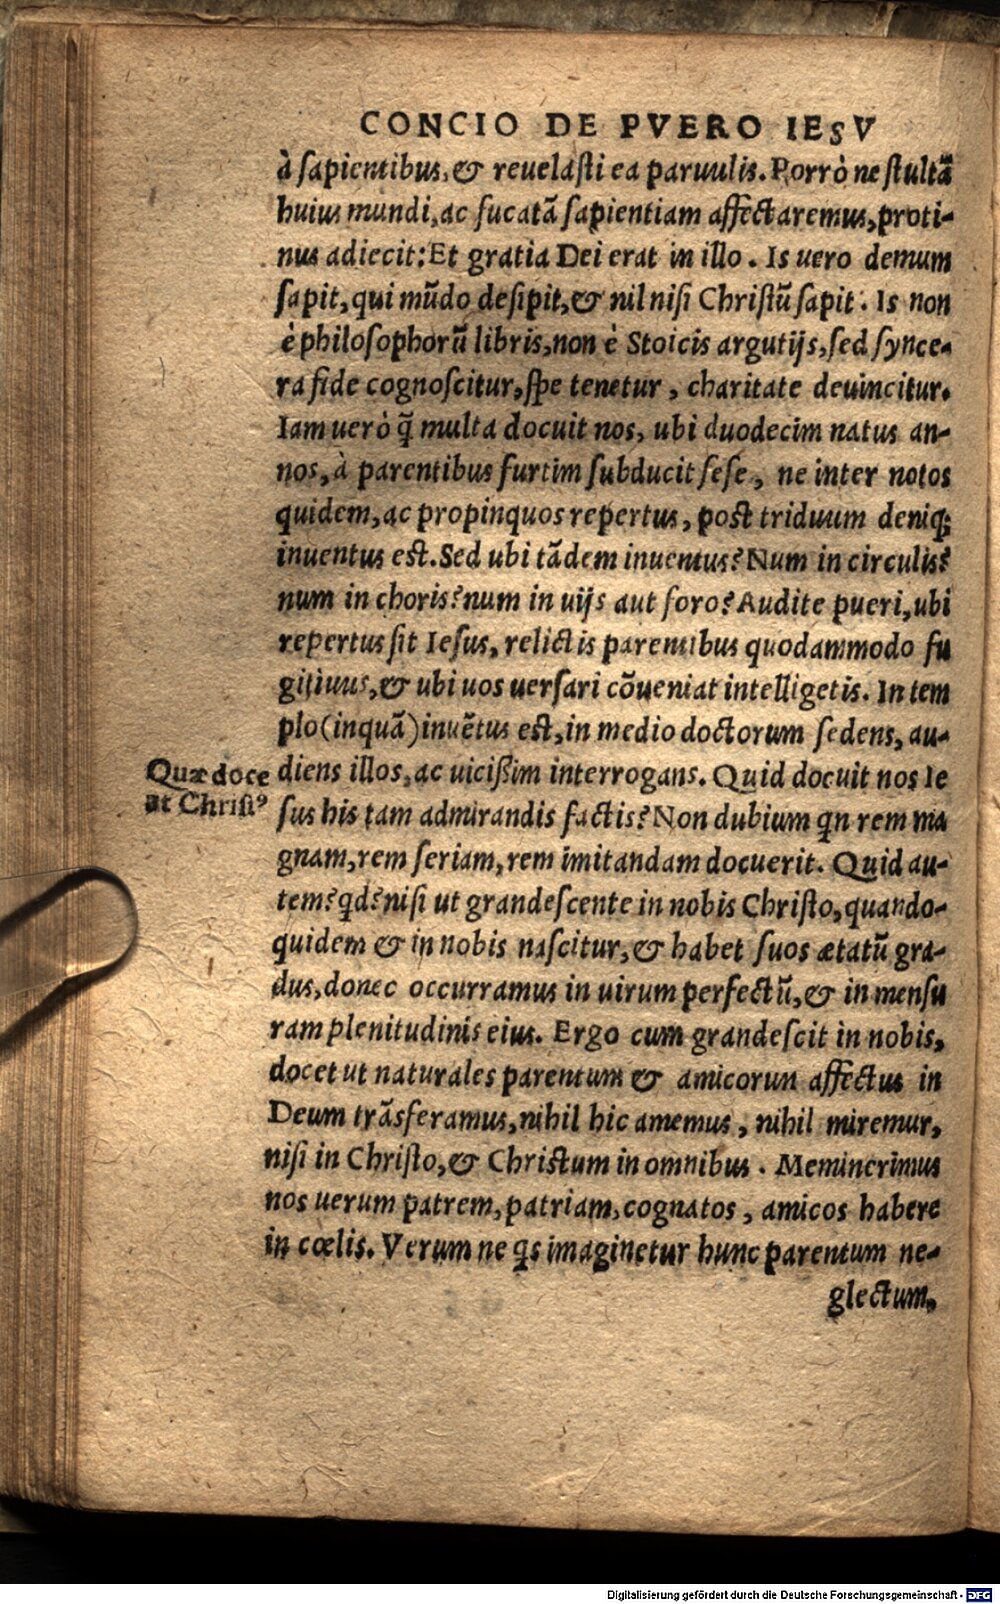 CONCIO DE PVERO IESV
à sapientibus, & reuelasti ea paruulis. Porrò ne stultã
huius mundi, ac fucatã sapientiam affectaremus, proti-
nus adiecit: Et gratia Dei erat in illo. Is uero demum
sapit, qui mũdo desipit, & nil nisi Christũ sapit. Is non
è philosophorũ libris, non è Stoicis argutijs, sed synce-
ra fide cognoscitur, spe tenetur, charitate deuincitur.
Iam uerò q̃ multa docuit nos, ubi duodecim natus an-
nos, à parentibus furtim subducit sese, ne inter notos
quidem, ac propinquos repertus, post triduum deniq;
inuentus est. Sed ubi tãdem inuentus? Num in circulis?
num in choris? num in uijs aut foro? Audite pueri, ubi
repertus sit Iesus, relictis parentibus quodammodo fu
gitiuus, & ubi uos uersari cõueniat intelligetis. In tem
plo (inquã) inuẽtus est, in medio doctorum sedens, au-
Quæ doce
at Christꝰ
diens illos, ac uicißim interrogans. Quid docuit nos Ie
sus his tam admirandis factis? Non dubium qn rem ma
gnam, rem seriam, rem imitandam docuerit. Quid au-
tem? qd? nisi ut grandescente in nobis Christo, quando-
quidem & in nobis nascitur, & habet suos ætatũ gra-
dus, donec occurramus in uirum perfectũ, & in mensu
ram plenitudinis eius. Ergo cum grandescit in nobis,
docet ut naturales parentum & amicorun affectus in
Deum trãsferamus, nihil hic amemus, nihil miremur,
nisi in Christo, & Christum in omnibus. Meminerimus
nos uerum patrem, patriam, cognatos, amicos habere
in cœlis. Verum ne qs imaginetur hunc parentum ne-
glectum,
Digitalisierung gefördert durch die Deutsche Forschungsgemeinschaft - DFG